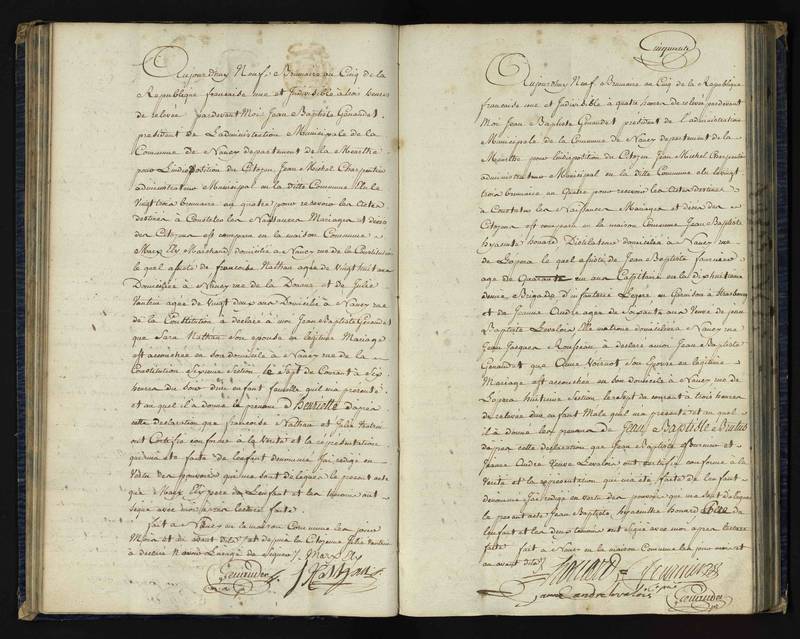 Aujourdhuy Neuf Brumaire au Cinq de la
Republique francaise une et Indivisible à trois heures
de relevée pardevant Moi Jean Baptiste Genaudet
président de Ladministration Municipale de la
Commune de Nancy département de la Meurthe
pour Lindisposition du Citoyen Jean Michel Charpentier
administrateur Municipal en la ditte Commune Elu le
Vingt trois brumaire an quatre pour recevoir les Actes
destinés à Constater les Naissances Mariages et décès
des Citoyens est comparu en la maison Commune
Marx Elly Marchand domicilié à Nancy rue de la Constitution
le quel assisté de françoise Nathan agée de Vingt huit ans
Domiciliée à Nancy rue de la Douane et de Julie
agée de Vingt deux ans Domicilié à Nancy rue
de la Constitution à déclaré à moi Jean Baptiste Genaudet
que Sara Nathan Son epouse en légitime Mariage
est accouchée en son domicile à Nancy rue de la
Constitution Sixieme Section le Sept du Courant à Six
heures du Soir d'un enfant femelle quil ma présenté
et au quel il a donné le prénom d'Henriette d'après
cette déclaration que françoise Nathan et Julie
ont Certifié conforme à la Verité et la représentation
qui ma été faite de Lenfant dénommé Jai rédigé en
Vertu des pouvoirs qui me sont délégués le présent acte
que Marx Elly pere de Lenfant et les témoins ont
Signé avec moi après lecture faite
fait à Nancy en la maison Commune les jour
Mois et an avant dits et depuis la Citoyenne Julie
à déclaré Navoir Lusage de Signer Marx Elly
Genaudet Nathan
Cinquante
Aujourdhuy Neuf Brumaire au Cinq de la République
francaise une et Indivisible à quatre heures de relevée pardevant
Moi Jean Baptiste Genaudet président de l'administration
Municipale de la Commune de Nancy département de la
Meurthe pour Lindisposition du Citoyen Jean Michel Charpentier
administrateur Municipal en la ditte Commune élu le vingt
trois brumaire an Quatre pour recevoir les Actes destinés
à Constater les Naissances Mariages et décès des
Citoyens est comparu en la maison Commune Jean Baptiste
hyacinte honard domicilié à Nancy rue
de Lapra le quel assisté de Jean Baptiste
age de Quarante un ans Capitaine en la Dixhuitieme
demie Brigade D'infanterie Legere en Garnison à Strasbourg
et de Jeanne Oudre agée de Soixante ans Veuve de Jean
Baptiste Levalois domiciliée à Nancy rue
Jean Jacques Rousseau à déclaré à moi Jean Baptiste
Genaudet que Anne Voirnot Son Epouse en légitime
Mariage est accouchée en Son domicile à Nancy rue de
Lapra huitieme Section le Sept du courant à trois heures
de relevée d'un enfant Male quil ma présenté et au quel
il à donné les prénoms de Jean Baptiste Brutus
d'après cette déclaration que Jean Baptiste et
Jeanne Oudre Veuve Levalois ont certifié conforme à la
Verité et la représentation qui ma été faite de Lenfant
dénommé Jai rédigé en vertu des pouvoirs qui me sont délégués
le présent acte Jean Baptiste hyacinthe honard Pere de
Lenfant et les deux temoins ont signé avec moi après lecture
faite fait à Nancy en la maison Commune les jour mois et
an avant dits
Honard
Jeanne oudre levalois
Genaudet